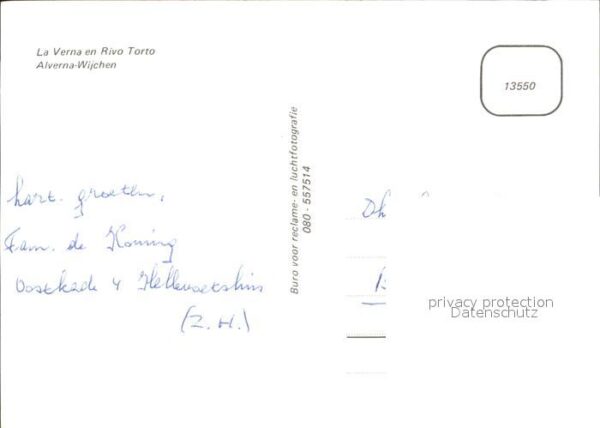 La Verna en Rivo Torto
Alverna-Wijchen
13550
Buro voor reclame- en luchtfotografie
080 - 557514
hart. groeten,
Fam. de Koning
Oostkade 4 Hellevoetsluis
(Z.H.)
privacy protection
Datenschutz